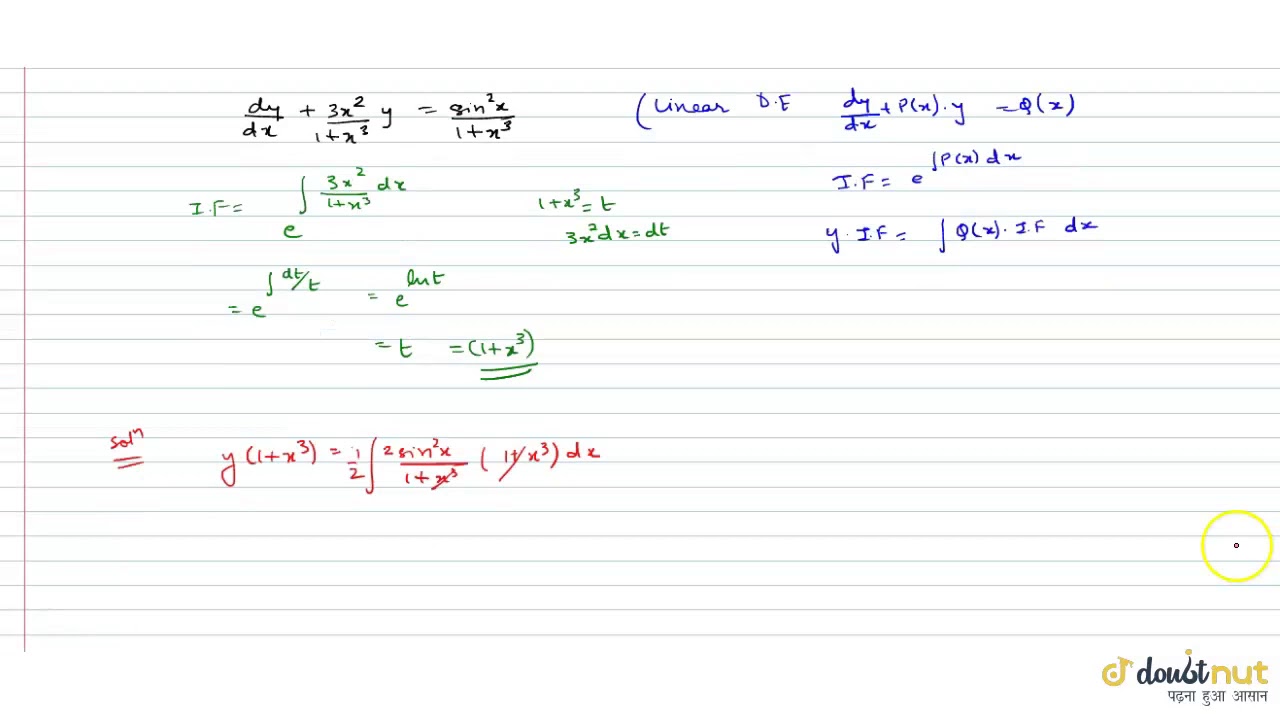 dy/dx + 3x²/(1+x³) y = sin²x/(1+x³) (Linear D.E dy/dx + P(x)·y = Q(x)
I.F = e^∫P(x) dx
I.F = e^∫ 3x²/(1+x³) dx
1+x³ = t
3x²dx = dt
y · I.F = ∫ Q(x) · I.F dx
= e^∫ dt/t = e^ln t
= t = (1+x³)
solⁿ
y (1+x³) = 1/2 ∫ 2 sin²x/(1+x³) (1+x³) dx
doubtnut
पढ़ना हुआ आसान